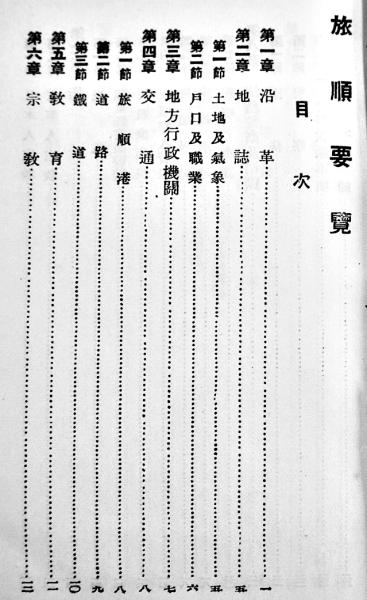 旅順要覽
目次
第一章 沿革……一
第二章 地誌……五
第一節 土地及氣象……五
第二節 戸口及職業……六
第三章 地方行政機關……七
第四章 交通……八
第一節 旅順港……八
第二節 道路……九
第三節 鐵道……一〇
第五章 敎育……一一
第六章 宗敎……一三